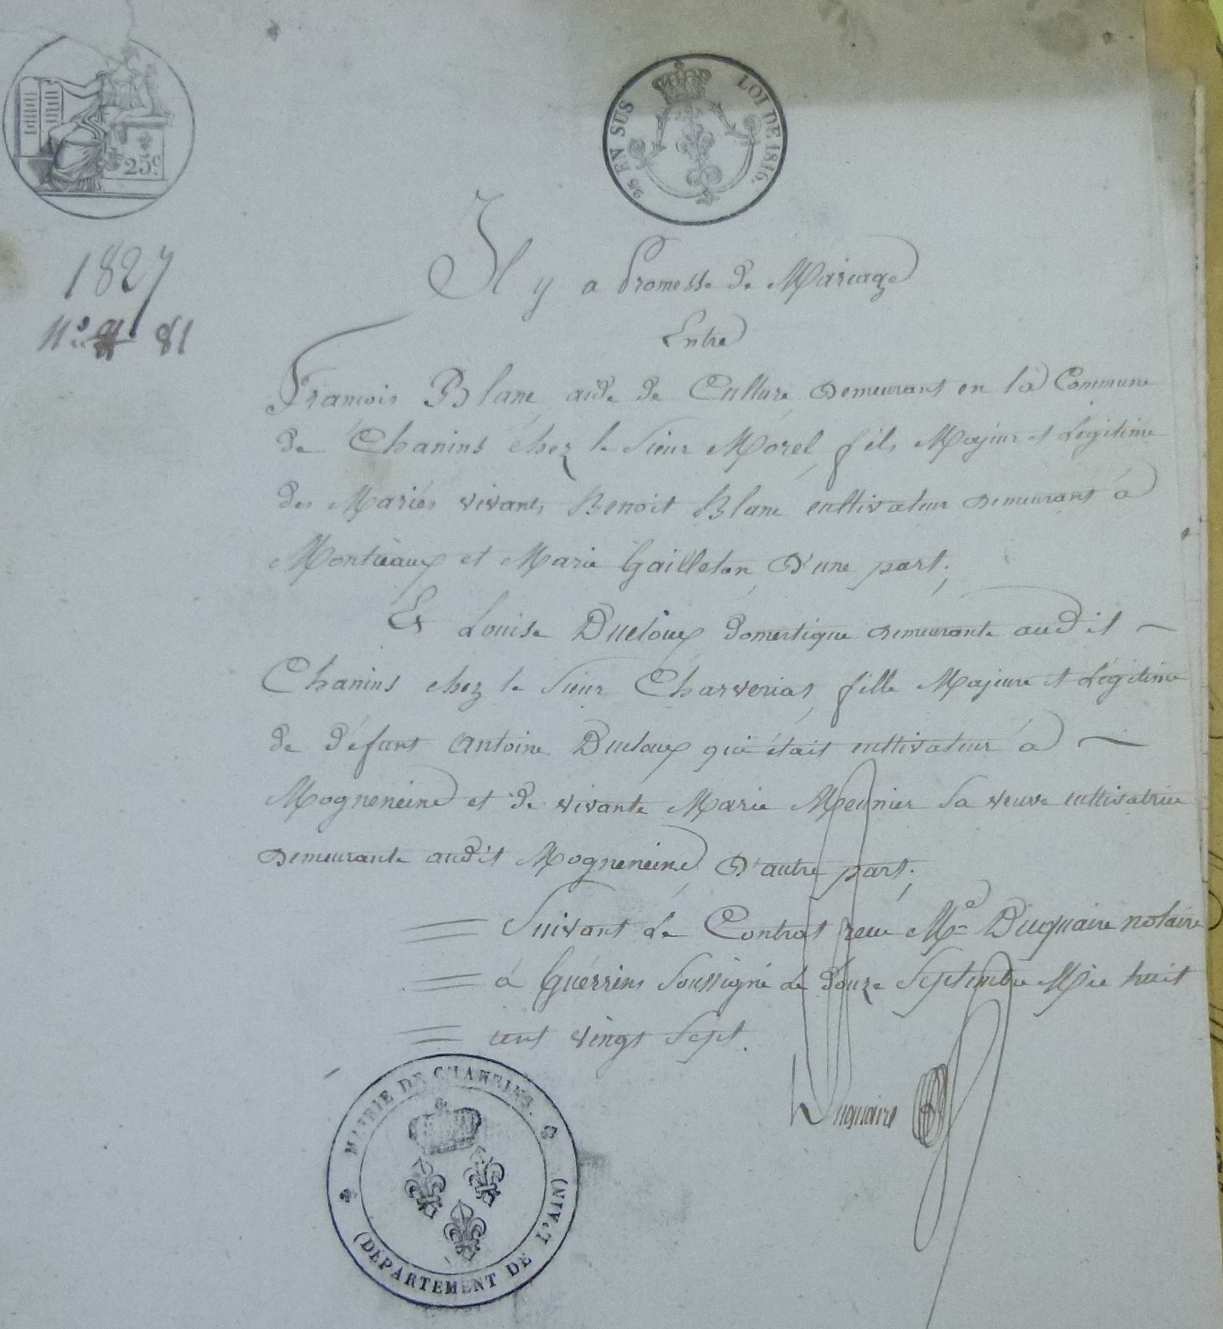 25c
25 EN SUS
LOI DE 1816.
1827
N.º 81
Il y a Promesse de Mariage
Entre
François Blanc, aide de Culture, demeurant en la Commune
de Chanins chez le Sieur Morel, fils Majeur et Légitime
des Mariés vivants Benoit Blanc cultivateur demeurant à
Montceaux et Marie Gailleton, d'une part;
Et Louise Ducloux domestique demeurante audit
Chanins chez le Sieur Charverias, fille Majeure et Légitime
de défunt Antoine Ducloux qui était cultivateur à
Mogneneins et de vivante Marie Meunier sa veuve cultivatrice
demeurante audit Mogneneins, d'autre part;
Suivant le Contrat reçu Me Duquaire notaire
à Guérreins Soussigné le douze Septembre Mil huit
cent vingt Sept.
Duquaire
MAIRIE DE CHANEINS.
(DÉPARTEMENT DE L'AIN)